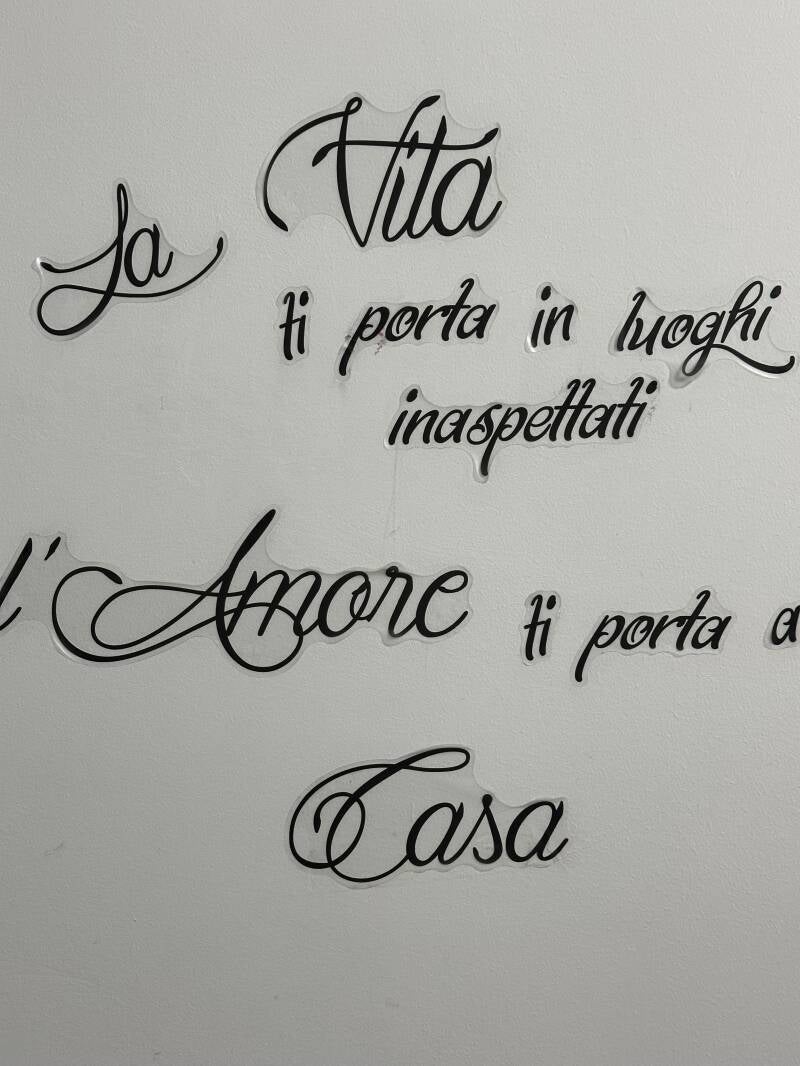 La Vita
ti porta in luoghi
inaspettati
l'Amore ti porta a
Casa